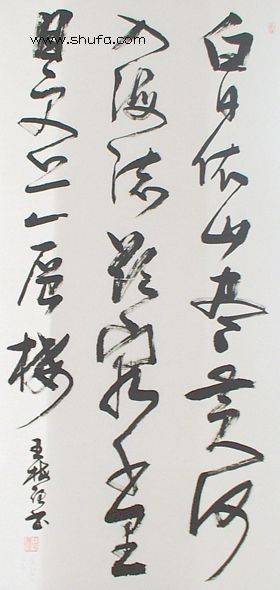 www.shufa.com
白日依山尽黄河
入海流欲穷千里
目更上一层楼